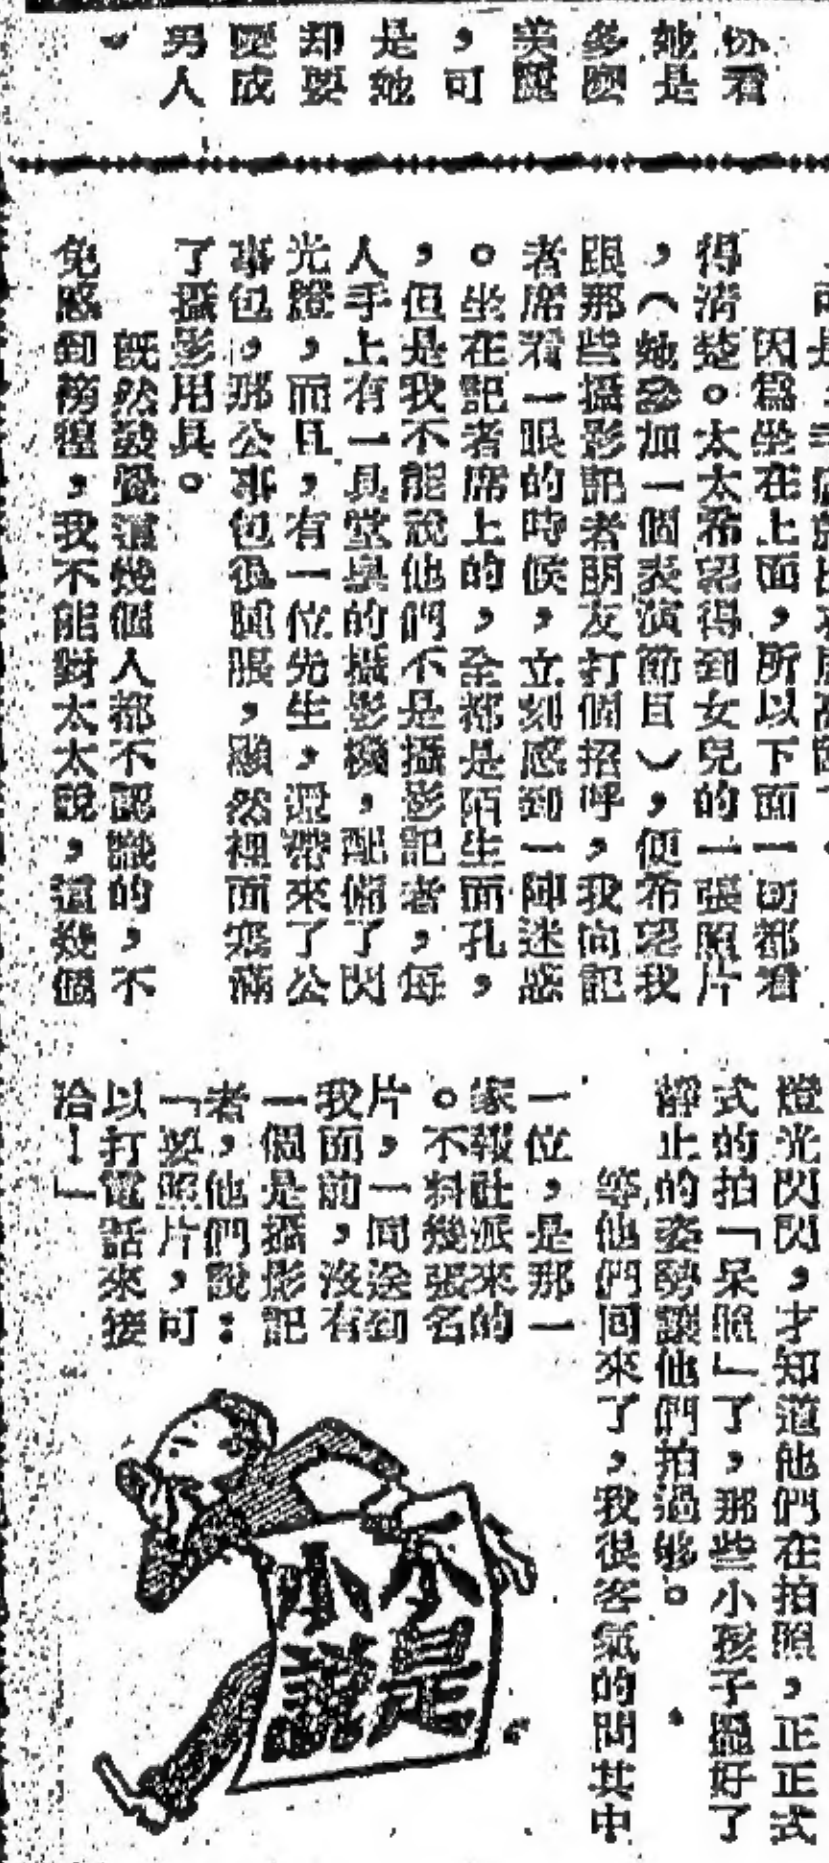 你看
她是
多麼
美麗
,可
是她
却要
變成
男人
。
因爲坐在上面,所以下面一切都看
得清楚。太太希望得到女兒的一張照片
,(她參加一個表演節目),便希望我
跟那些攝影記者朋友打個招呼,我向記
者席看一眼的時候,立刻感到一陣迷惑
。坐在記者席上的,全都是陌生面孔,
,但是我不能說他們不是攝影記者,每
人手上有一具堂皇的攝影機,配備了閃
光燈,而且,有一位先生,還帶來了公
事包,那公事包很陣眼,顯然裡面塞滿
了攝影用具。
既然發覺這幾個人都不認識的,不
免感到徬徨,我不能對太太說,這幾個
燈光閃閃,才知道他們在拍照,正正式
式的拍「呆照」了,那些小孩子擺好了
靜止的姿勢讓他們拍過够。
等他們回來了,我很客氣的問其中
一位,是那一
家報社派來的
。不料幾張名
片,一同送到
我面前,沒有
一個是攝影記
者,他們說:
「要照片,可
以打電話來接
洽!」
不是
小說